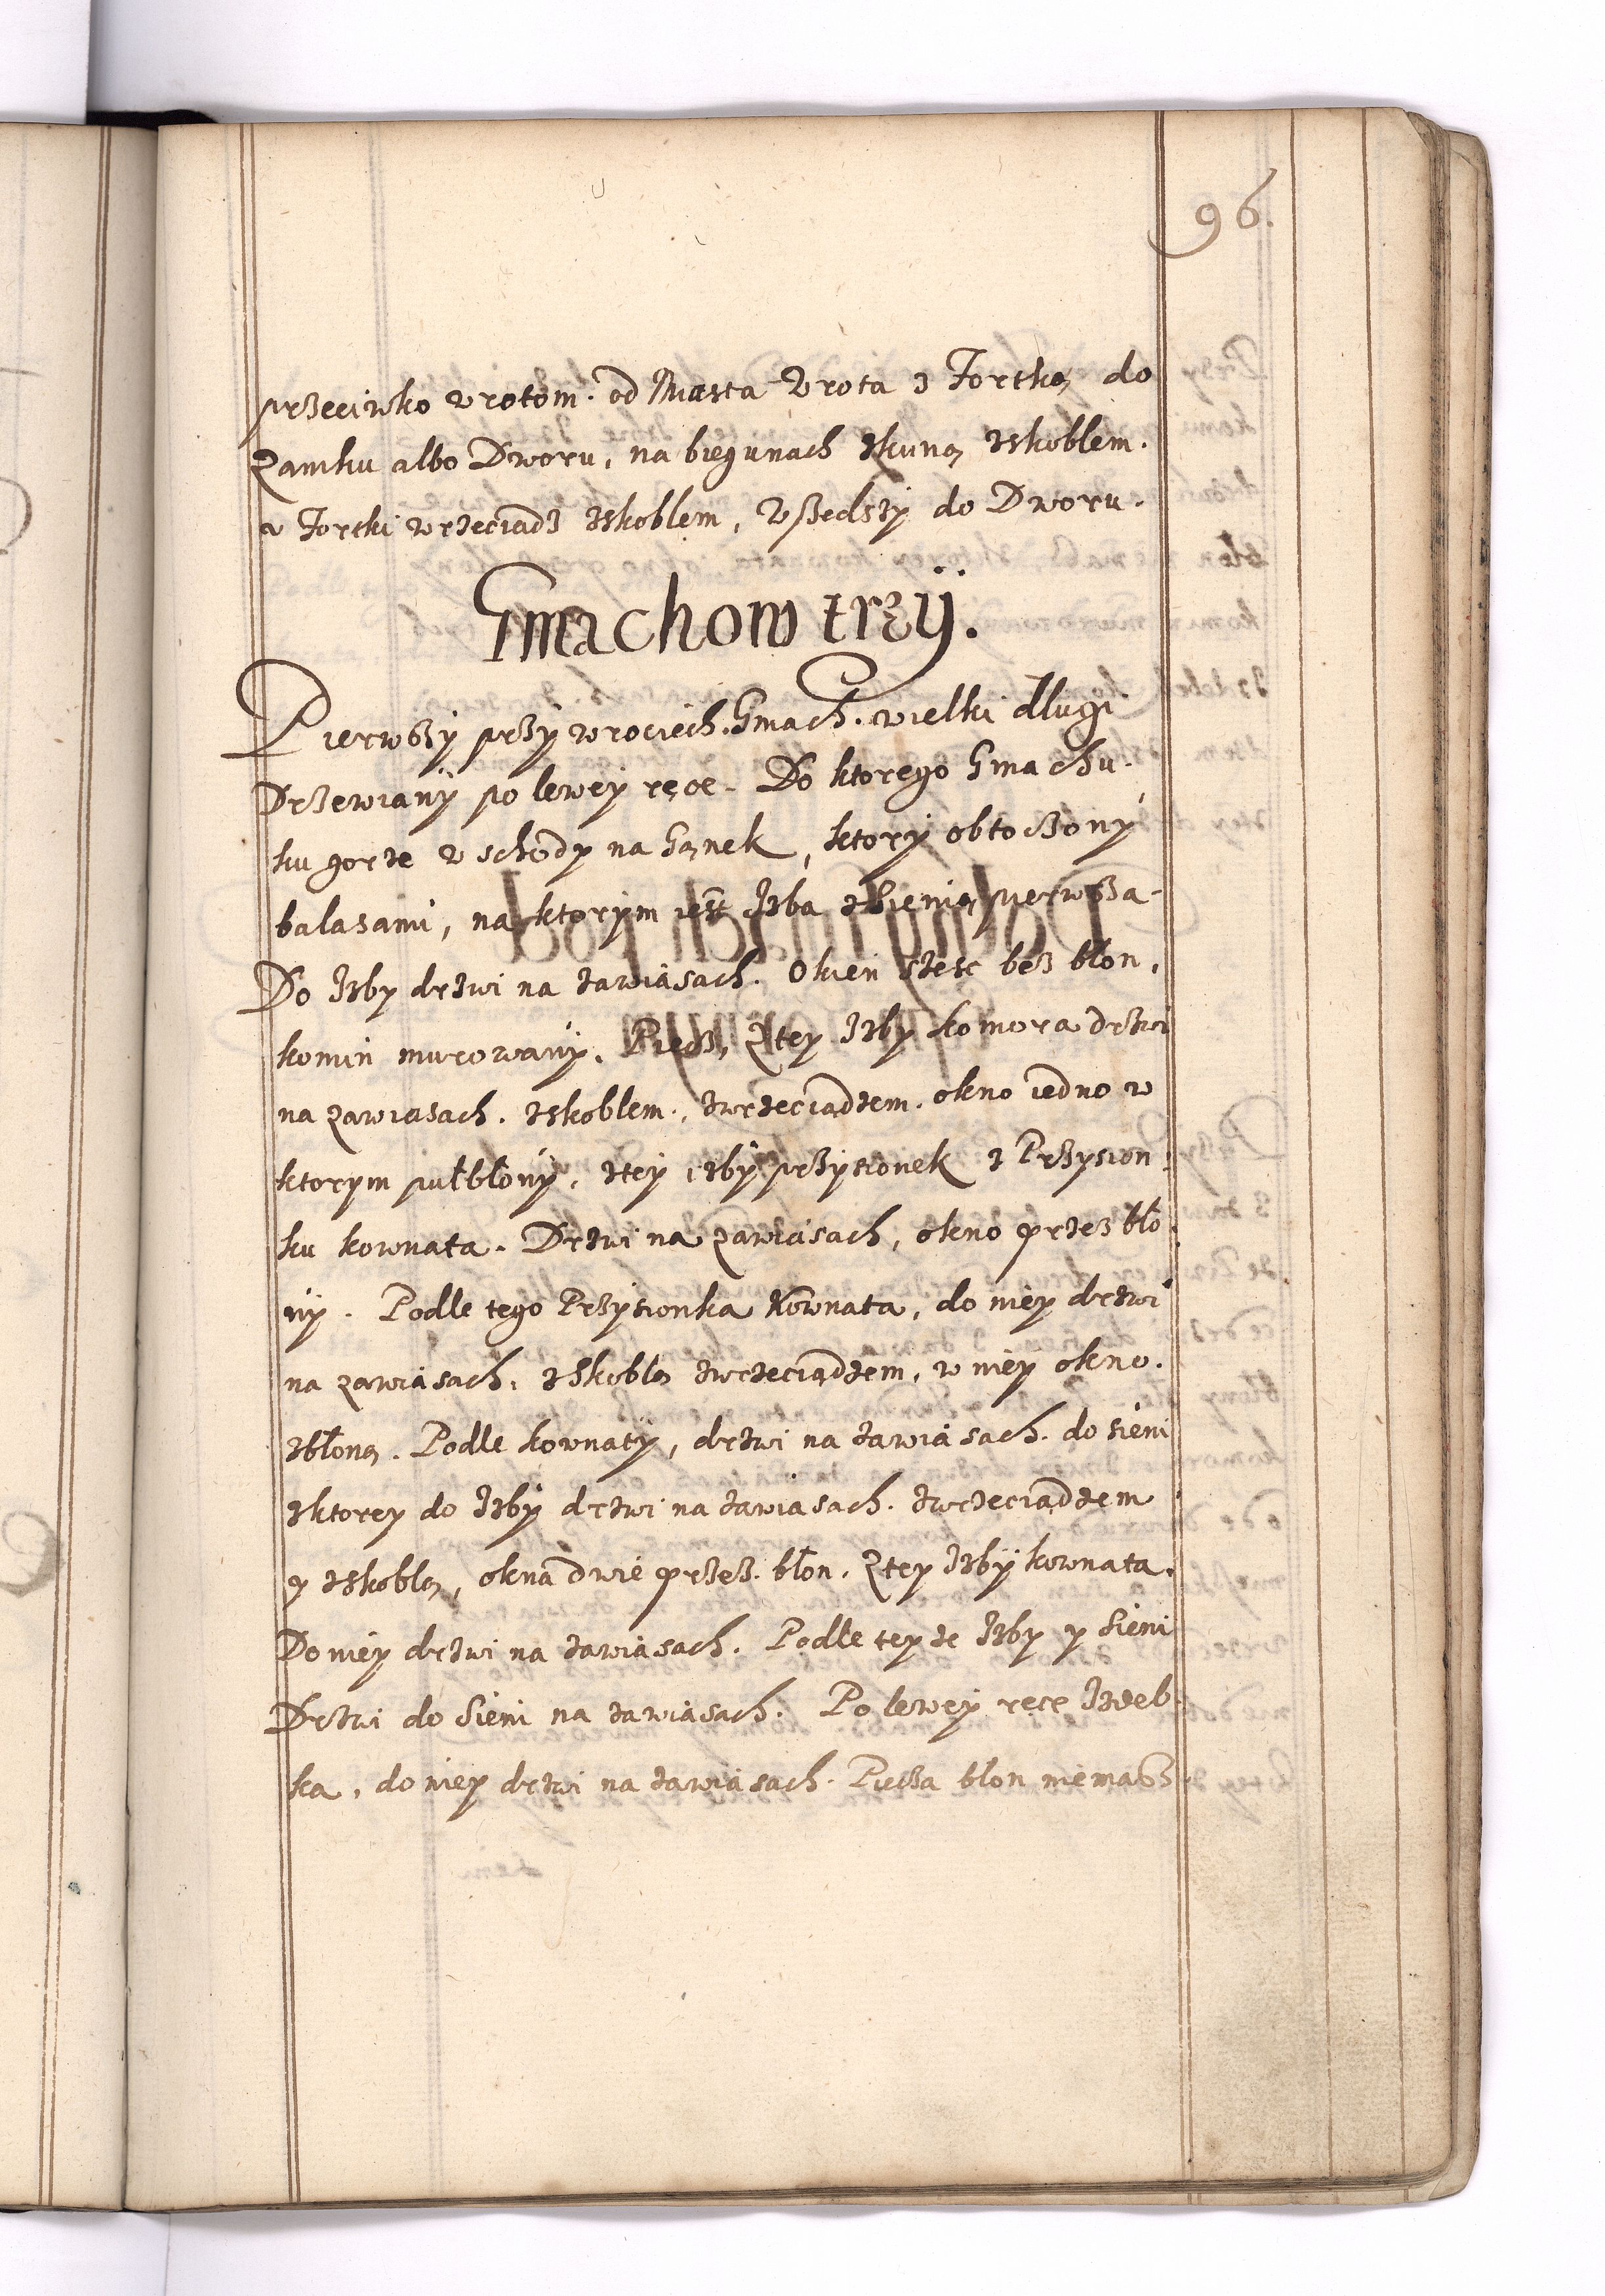 96.
przeciwko wrotom. od Miasta Wrota z Fortką do
Zamku albo Dworu, na biegunach zkuną zskoblem.
v Fortki wrzeciądz zskoblem, Wszedszÿ do Dworu.
Gmachow trzÿ.
Pierwszÿ przÿ wrociech. Gmach. wielki dlugi
Drzewianÿ po lewey ręce. Do ktorego Gmachu.
ku gorze wschody na Ganek, ktorÿ obtoczonÿ
balasami, na ktorÿm iest Izba zSienią pierwsza.
Do Izby drzwi na zawiasach. Okien szesc bez błon,
komin murowanÿ. Piecz, Ztey Izby komora drzwi
na zawiasach. zskoblem. zwrzeciądzem. okno iedno w
ktorym pułbłonÿ, ztey izbÿ przÿsionek z Przysion
ku kownata. Drzwi na zawiasach, okno przez bło
nÿ. Podle tego Przysionka Kownata, do niey drzwi
na zawiasach, zSkoblą zwrzeciądzem, w niey okno.
zbłoną. Podle kownatÿ, drzwi na zawiasach. do sieni
zktorey do Izbÿ drzwi na zawiasach. zwrzeciądzem
y zskoblą, okna dwie przez. błon. Ztey Izbÿ kownata.
Do niey drzwi na zawiasach. Podle teyze Izby y Sieni
Drzwi do Sieni na zawiasach. Po lewey rece Izdeb
ka, do niey drzwi na zawiasach. Piecza błon niemasz